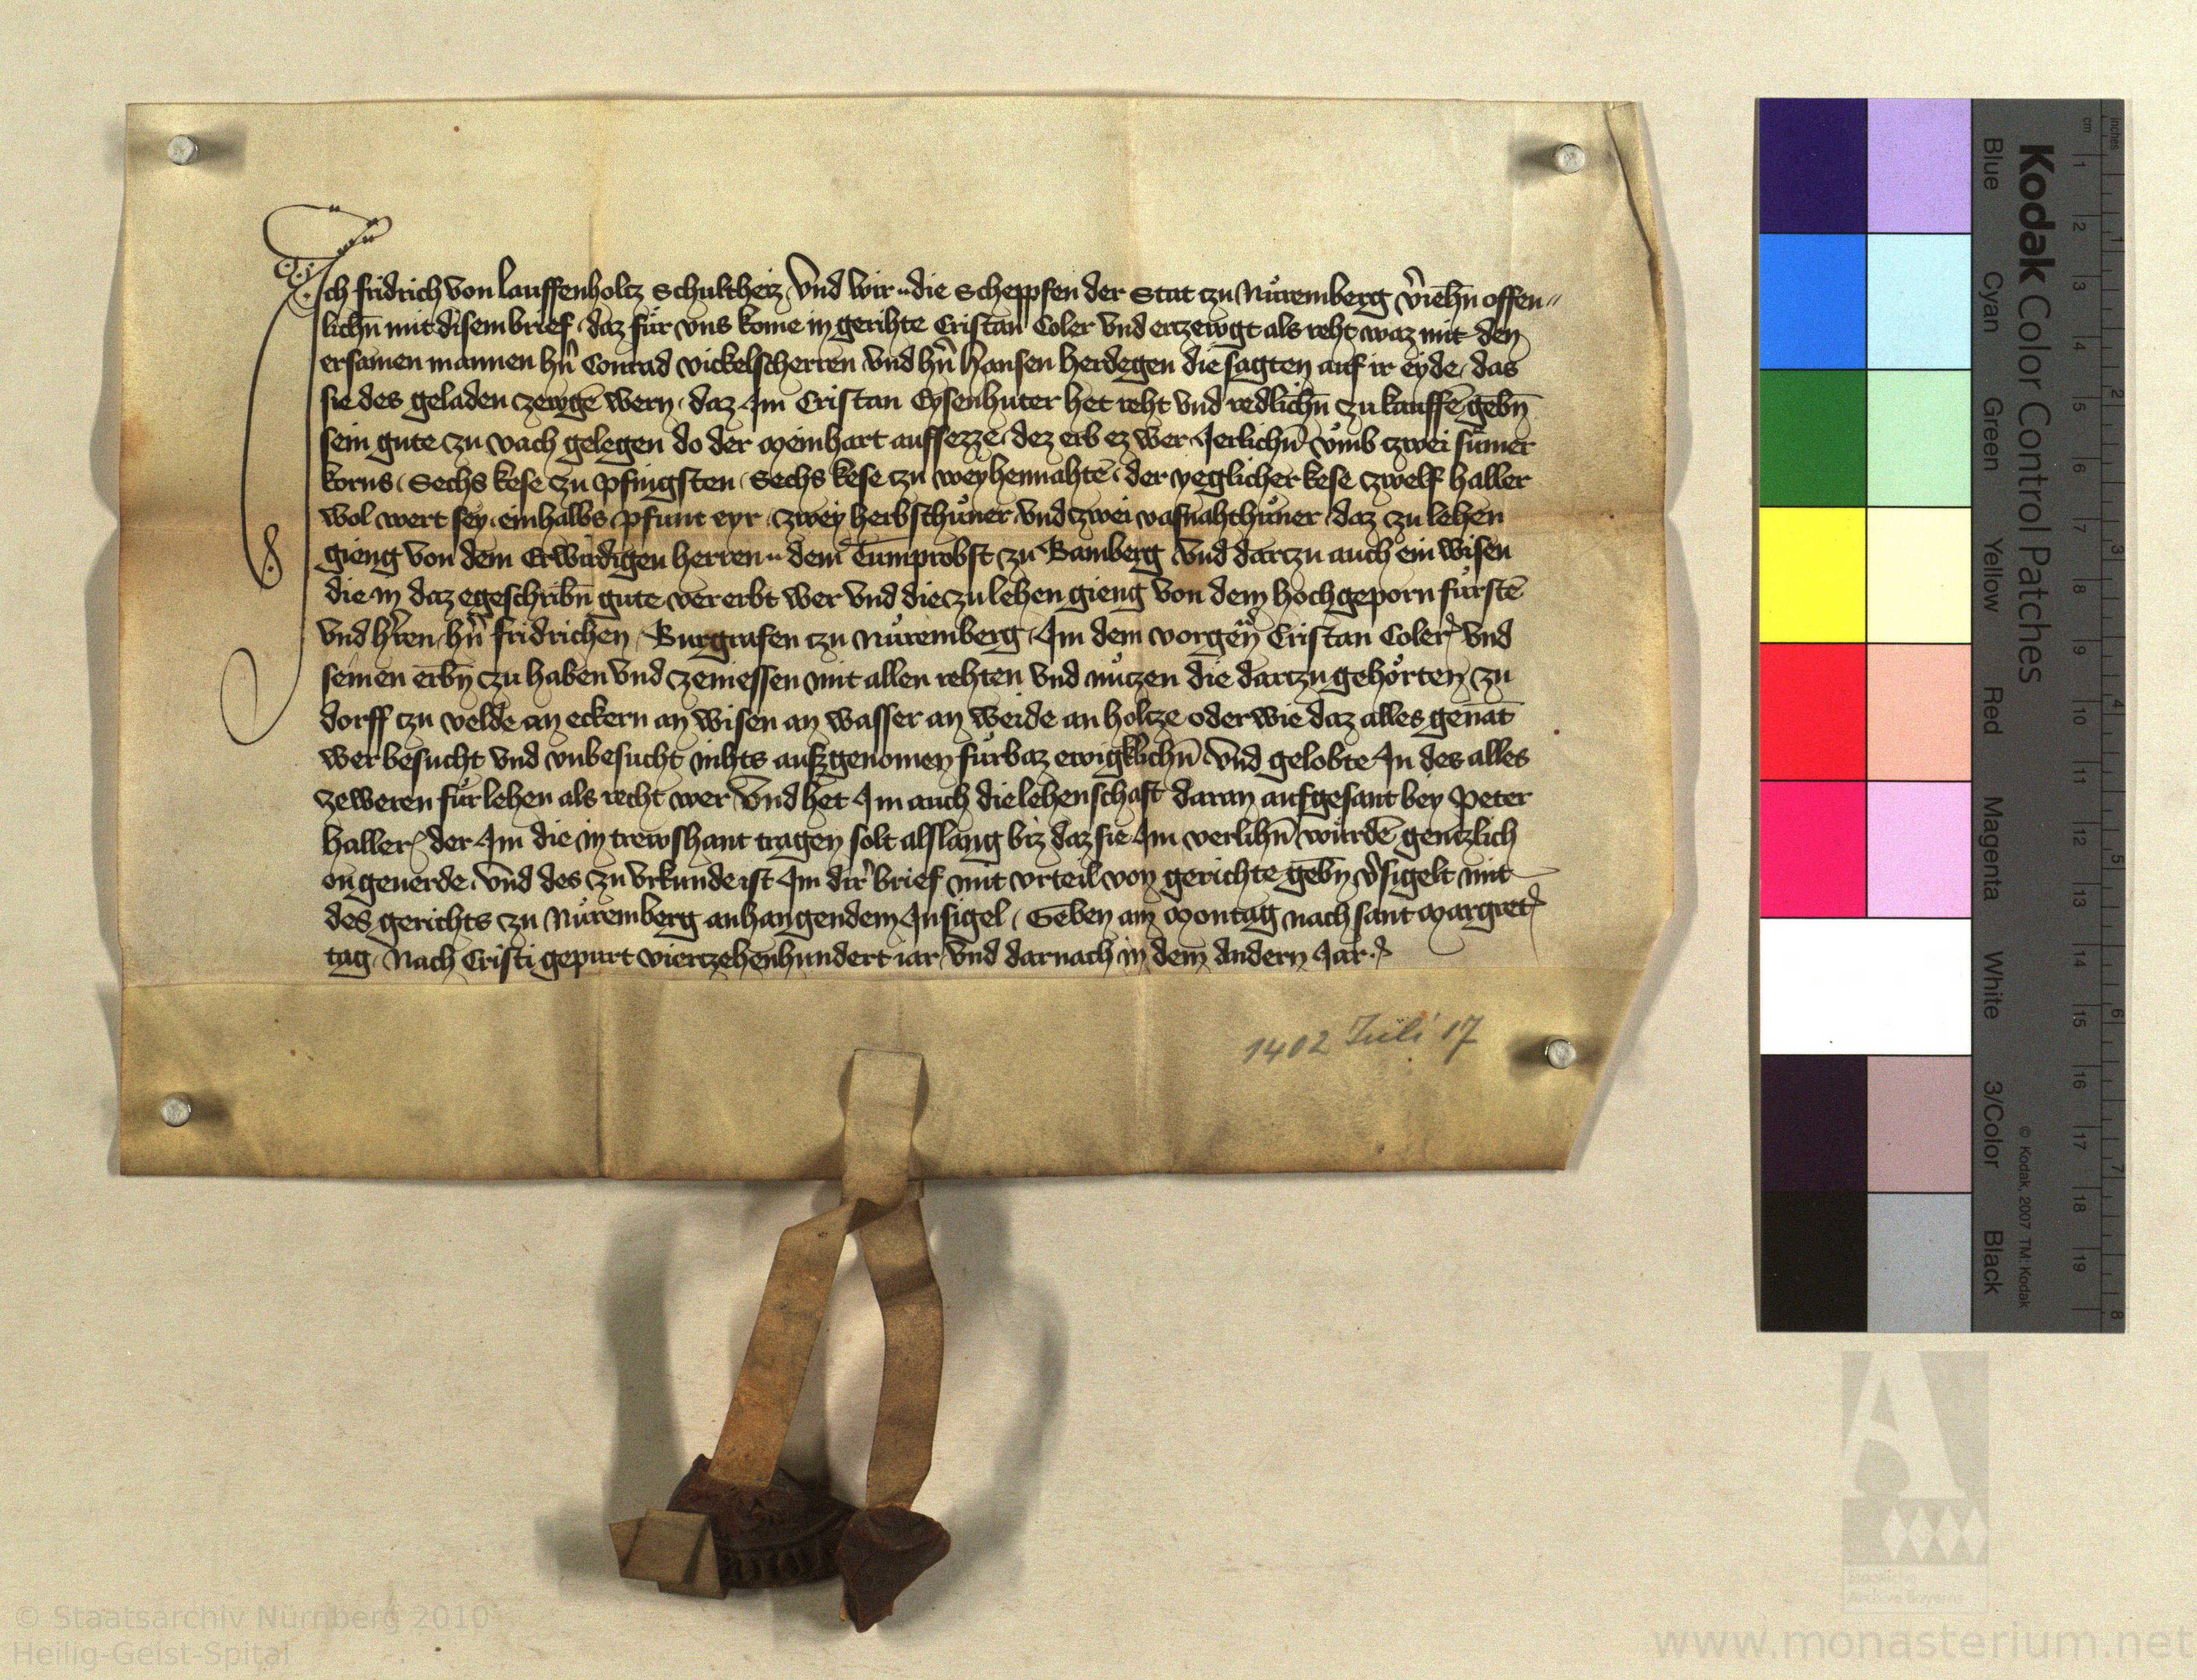 Ich fridrich von lauffenholtz Schultheiz Vnd wir ·· die Scheppfen der Stat zu Nuͤremberg v̾iehn̄ offen〃
lichn̄ mit disem brief / daz fuͤr vns kome in gerihte Cristan Coler vnd ertzewgt als reht waz mit den
ersamen mannen hn̄ Conrad vickelscherren vnd hn̄ hansen herdegen die sagten auf ir eyde / das
sie des geladen czewgē wern / daz Im Cristan Eysenhuter het reht vnd redlichn̄ zu kauffē gebn̄
sein gute zu vach gelegen do der Meinhart auffezze / dez erb ez wer Jerlichn̄ vmb zwei suͤmer
korns / Sechs kese zu Pfingsten / Sechs kese zu weyhennahtē / der yeglicher kese zwelf haller
wol wert sey / einhalbs pfunt eyr / zwey herbsthuͤner vnd zwei vasnahthuͤner / daz zu lehen
gieng von dem Erwirdigen herren ·· dem Tumprobst zu Bamberg Vnd dartzu auch ein wisen
die in daz egeschribn̄ gute vererbt wer vnd die zu lehen gieng von dem hochgeporn fuͤrstē
vnd h̾ren hn̄ fridrichen Burgrafen zu Nuͤremberg / Im dem vorgen̄ Cristan Coler vnd
seinen erbn̄ zu haben vnd zeniessen mit allen rehten vnd nuͤtzen die dartzu gehoͤrten zu
dorff zu velde an eckern an wisen an wasser an weide an holtze oder wie daz alles genāt
wer besucht vnd vnbesucht nihts aufzgenomen fuͤrbaz ewigklichn̄ Vnd gelobte In des alles
zeweren fuͤr lehen als recht wer Vnd het Im auch die lehenschaft daran aufgesant bey Peter
haller / der Im die in trewshant tragen solt alslang biz daz sie Im verlihn̄ wuͤrdē gentzlich
on geuerde / Vnd des zu Vrkunde ist Im dir̾ brief mit vrteil von gerichte gebn̄ v̾sigelt mit
des gerichts zu Nuͤremberg anhangendem Insigel / Geben am Montag nach sant Margretͤ
tag / Nach Cristi gepurt viertzehenhundert iar Vnd darnach in dem Andern Jar
1402 Juli 17
Kodak Color Control Patches
Blue Cyan Green Yellow Red Magenta White 3/Color Black
© Kodak, 2007 TM: Kodak
inches 1 2 3 4 5 6 7 8
cm 1 2 3 4 5 6 7 8 9 10 11 12 13 14 15 16 17 18 19
© Staatsarchiv Nürnberg 2010
Heilig-Geist-Spital
www.monasterium.net